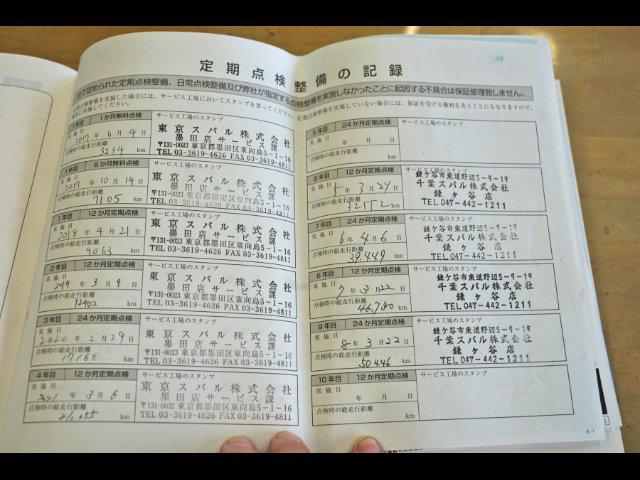 定期点検整備の記録
で定められた定期点検整備、日常点検整備及び弊社が指定する点検整備を実施しなかったことに起因する不具合は保証修理致しません。
1か月無料点検
サービス工場のスタンプ
実施日
2017年6月4日
点検時の総走行距離
3234 km
東京スバル株式会社
墨田店サービス課
〒131-0023 東京都墨田区東向島5-1-16
TEL 03-3619-4626 FAX 03-3619-4811
1年目 6か月無料点検
サービス工場のスタンプ
実施日
2017年10月14日
点検時の総走行距離
7105 km
東京スバル株式会社
墨田店サービス課
〒131-0023 東京都墨田区東向島5-1-16
TEL 03-3619-4626 FAX 03-3619-4811
1年目 12か月定期点検
サービス工場のスタンプ
実施日
2018年4月21日
点検時の総走行距離
9063 km
東京スバル株式会社
墨田店サービス課
〒131-0023 東京都墨田区東向島5-1-16
TEL 03-3619-4626 FAX 03-3619-4811
2年目 12か月定期点検
サービス工場のスタンプ
実施日
年3月9日
点検時の総走行距離
km
東京スバル株式会社
墨田店サービス課
〒131-0023 東京都墨田区東向島5-1-16
TEL 03-3619-4626 FAX 03-3619-4811
3年目 24か月定期点検
サービス工場のスタンプ
実施日
2020年2月29日
点検時の総走行距離
17166 km
東京スバル株式会社
墨田店サービス課
〒131-0023 東京都墨田区東向島5-1-16
TEL 03-3619-4626 FAX 03-3619-4811
4年目 12か月定期点検
サービス工場のスタンプ
実施日
2021年3月6日
点検時の総走行距離
km
東京スバル株式会社
墨田店サービス課
〒131-0023 東京都墨田区東向島5-1-16
TEL 03-3619-4626 FAX 03-3619-4811
5年目 24か月定期点検
サービス工場のスタンプ
実施日
年 月 日
点検時の総走行距離
km
6年目 12か月定期点検
サービス工場のスタンプ
実施日
年3月27日
点検時の総走行距離
km
鎌ケ谷市東道野辺5-9-19
千葉スバル株式会社
鎌ヶ谷店
TEL 047-442-1211
7年目 24か月定期点検
サービス工場のスタンプ
実施日
6年4月6日
点検時の総走行距離
39,449 km
鎌ケ谷市東道野辺5-9-19
千葉スバル株式会社
鎌ヶ谷店
TEL 047-442-1211
8年目 12か月定期点検
サービス工場のスタンプ
実施日
7年3月22日
点検時の総走行距離
46,780 km
鎌ケ谷市東道野辺5-9-19
千葉スバル株式会社
鎌ヶ谷店
TEL 047-442-1211
9年目 24か月定期点検
サービス工場のスタンプ
実施日
8年3月22日
点検時の総走行距離
50,446 km
鎌ケ谷市東道野辺5-9-19
千葉スバル株式会社
鎌ヶ谷店
TEL 047-442-1211
10年目 12か月定期点検
サービス工場のスタンプ
実施日
年 月 日
点検時の総走行距離
km
8-1